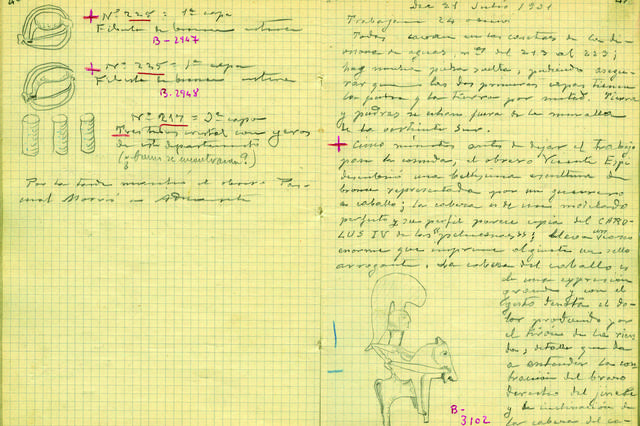 Nº 225 = 1ª capa
Filete de bronce entero
B-2947
Nº 225 = 1ª capa
Filete de bronce entero
B-2948
Nº 217 = 2ª capa
Tres tubos cristal con
de este departamento
Por la tarde marchó el obrero
Día 21 Julio 1931
Trabajan 24 obreros
Todos cavan en las de
de aguas, nºs del 213 al 223;
hay mucha piedra suelta, pudiendo asegu-
rar que las dos primeras capas tienen
la piedra y la tierra por mitad. Tierra
y piedras se echan fuera de la muralla
de la vertiente Sur.
Cinco minutos antes de dejar el trabajo
para la comida, el obrero Vicente Espí
descubrió una bellísima escultura de
bronce representada por un guerrero
a caballo; la cabeza es de un modelado
perfecto y su perfil parece copia del CARO-
LUS IV de las "peluconas"; lleva un casco
enorme que imprime al jinete un sello
arrogante. La cabeza del caballo es
de una expresión
grande y con el
gesto denota el do-
lor producido por
el tirón de las rien-
das, detalle que da
a entender la con-
tracción del brazo
derecho del jinete
y la inclinación de
la cabeza del ca-
B-
3102